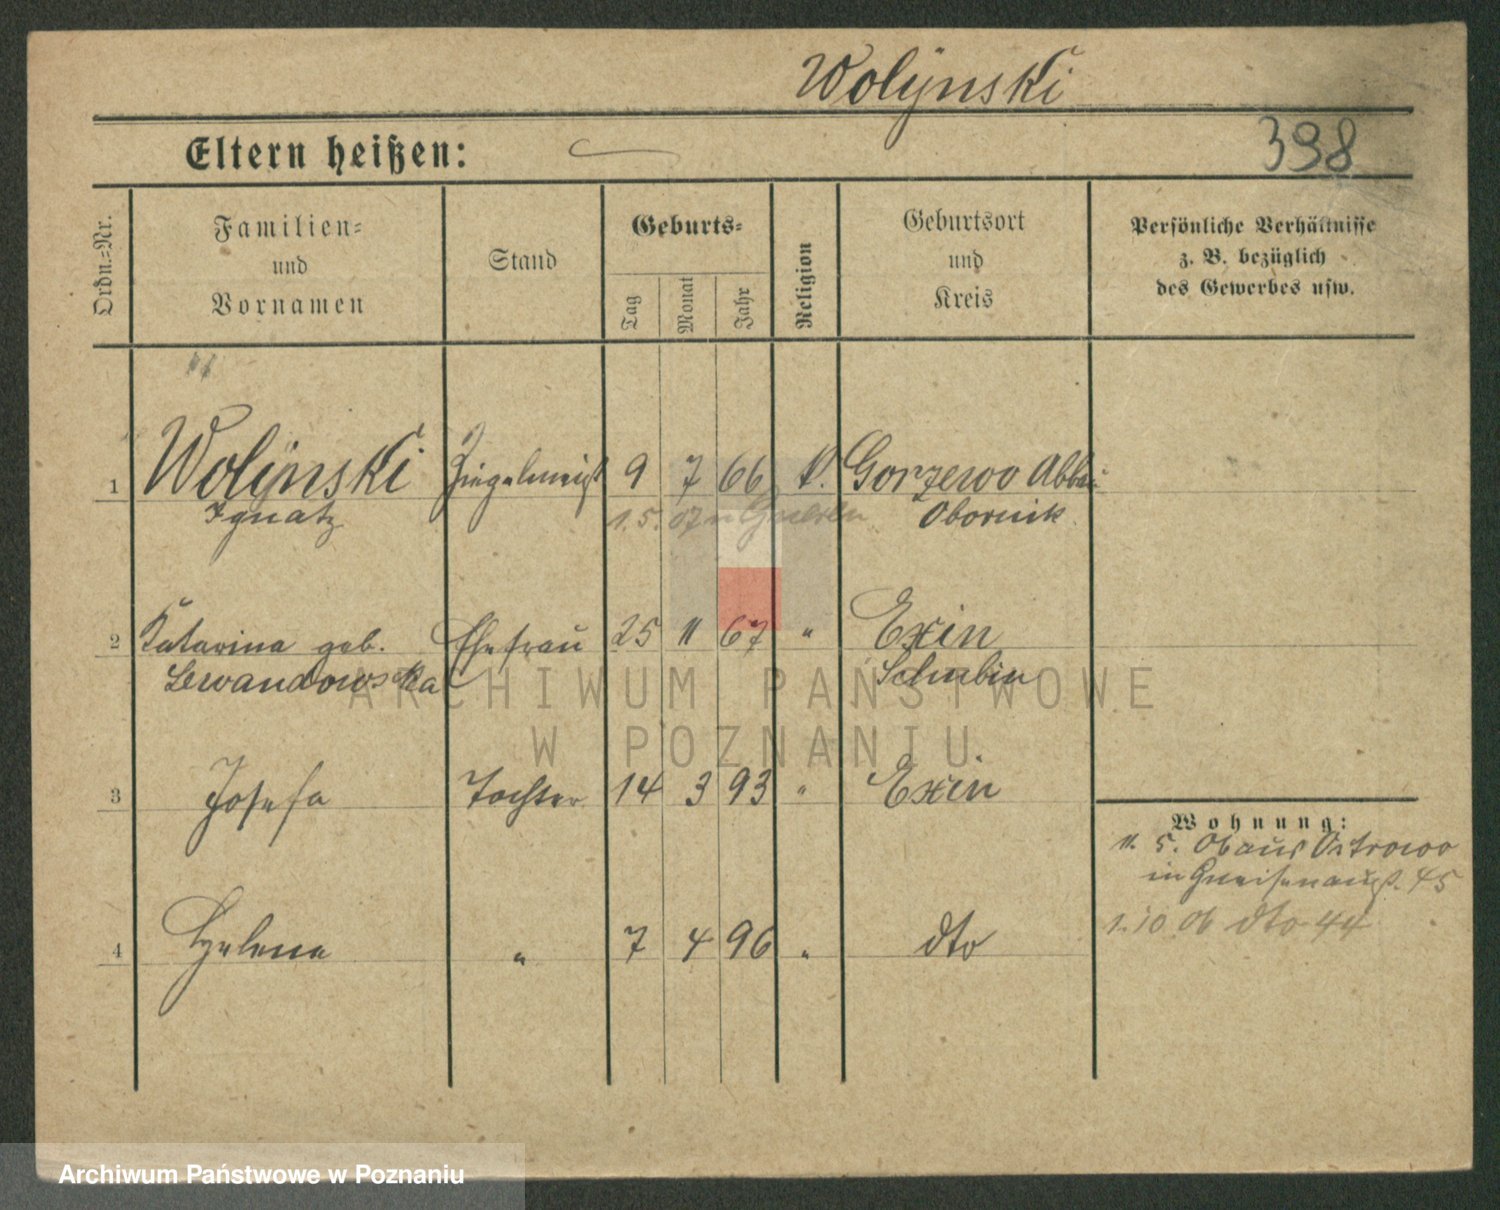 Wolÿnski
Eltern heißen:
398
Ordn.=Nr.
Familien=
und
Vornamen
Stand
Geburts=
Tag
Monat
Jahr
Religion
Geburtsort
und
Kreis
Persönliche Verhältnisse
z. B. bezüglich
des Gewerbes usw.
1 Wolÿnski Ziegelmeist 9 7 66 k. Gorzewo Abbau
Ignatz 1. 5. 07 n Obornik
2 Katarina geb. Ehefrau 25 11 67 " Exin
Lewandowska Schubin
3 Josefa Tochter 14 3 93 " Exin
4 Helena " 7 4 96 " dto
Wohnung:
11. 5. 06 aus Ostrowo
in Gneisenaust. 45
1. 10 06 dto 44
ARCHIWUM PAŃSTWOWE
W POZNANIU
Archiwum Państwowe w Poznaniu